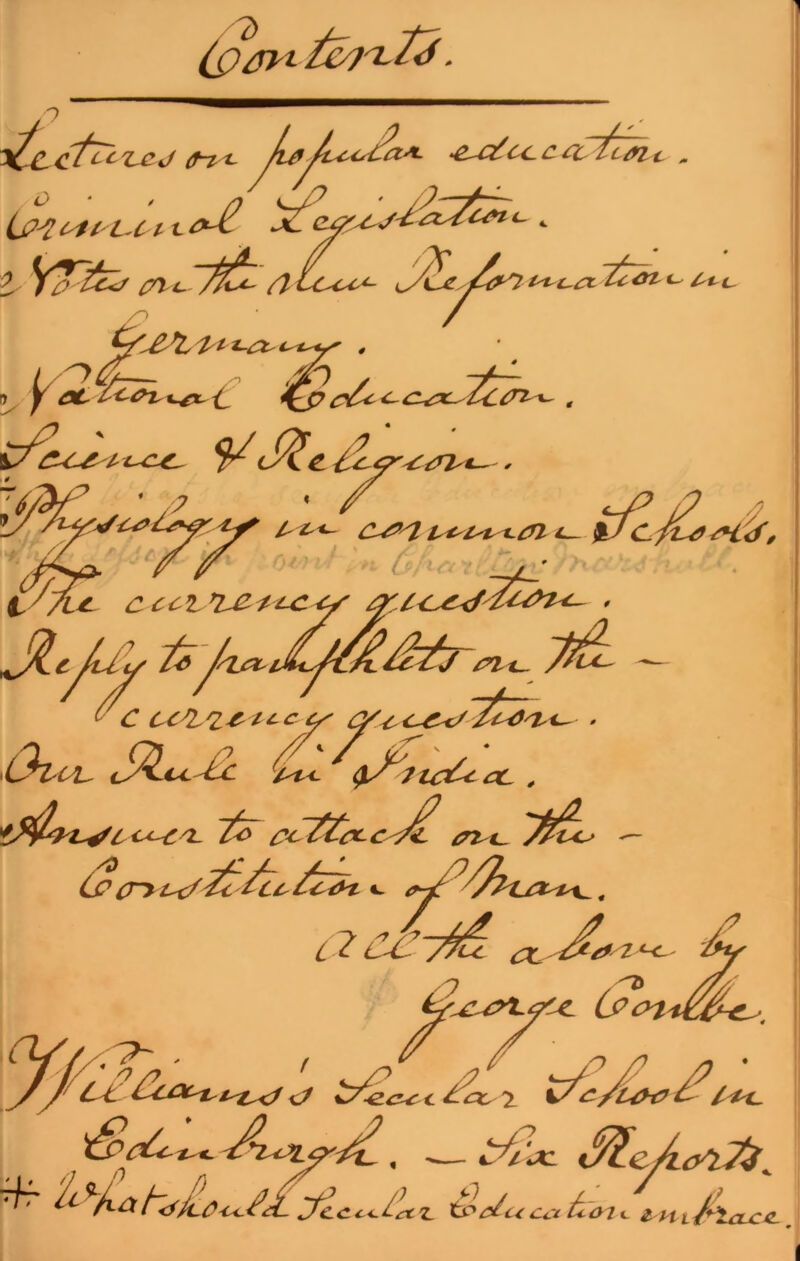 Contents.
Lectures on popular education.
Criminal Legislation.
Notes on the new Reformation in
Germany.
National Education.
Science & Religion.
Physiology in common Schools.
The currency question.
Reply to pamphlets on the —
currency question.
Our Rule in India.
Answer to attack on the —
Constitution of Man.
All the above by
George Combe.
Williams's Secular School in
Edinburgh. — Six Reports.
+ What should Secular Education embrace.